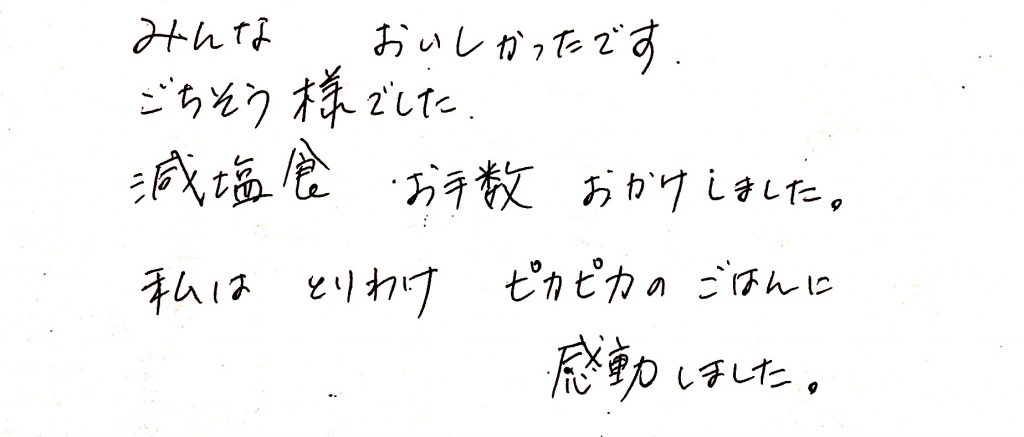 みんな おいしかったです.
ごちそう様でした.
減塩食 お手数 おかけしました。
私は とりわけ ピカピカの ごはんに
感動しました。